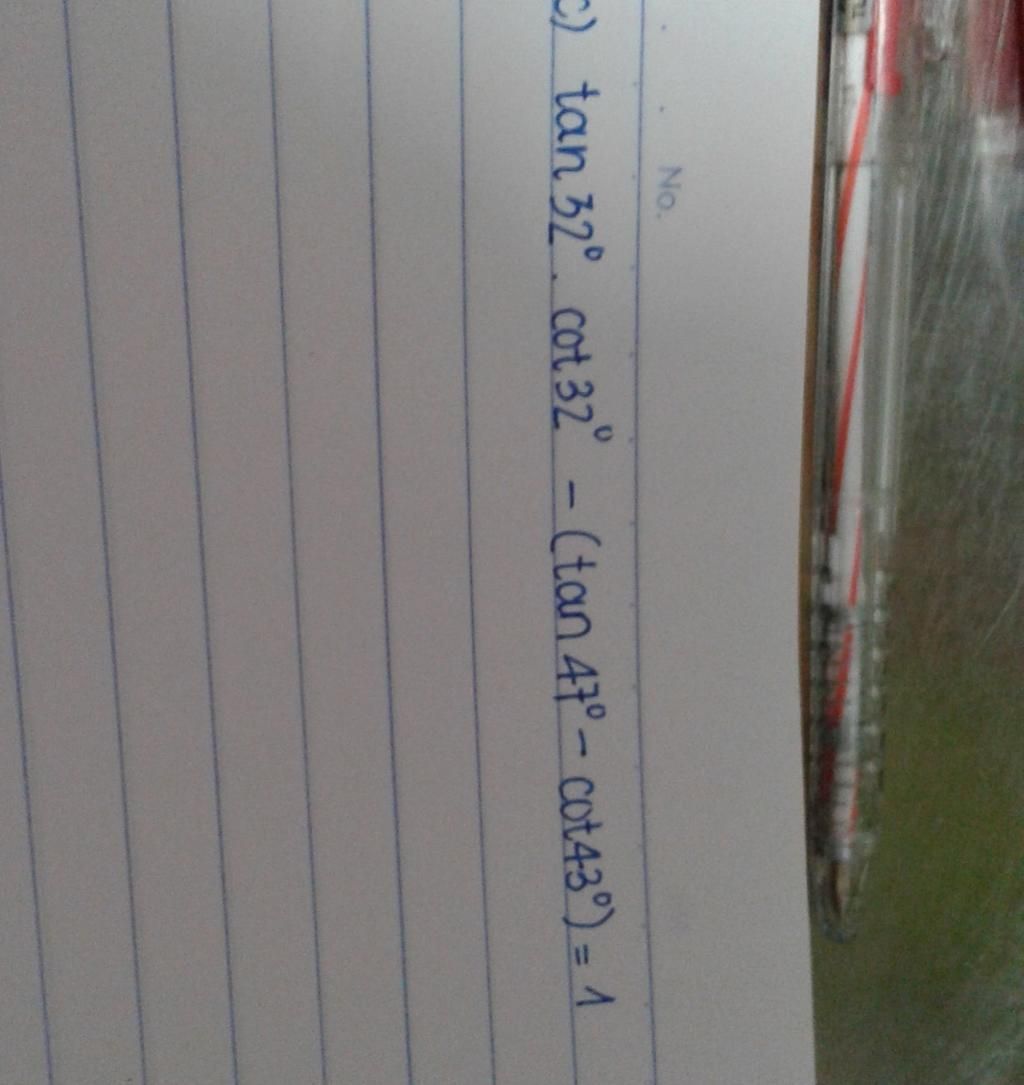 No.
c) tan 32⁰ . cot 32⁰ - (tan 47⁰ - cot 43⁰) = 1